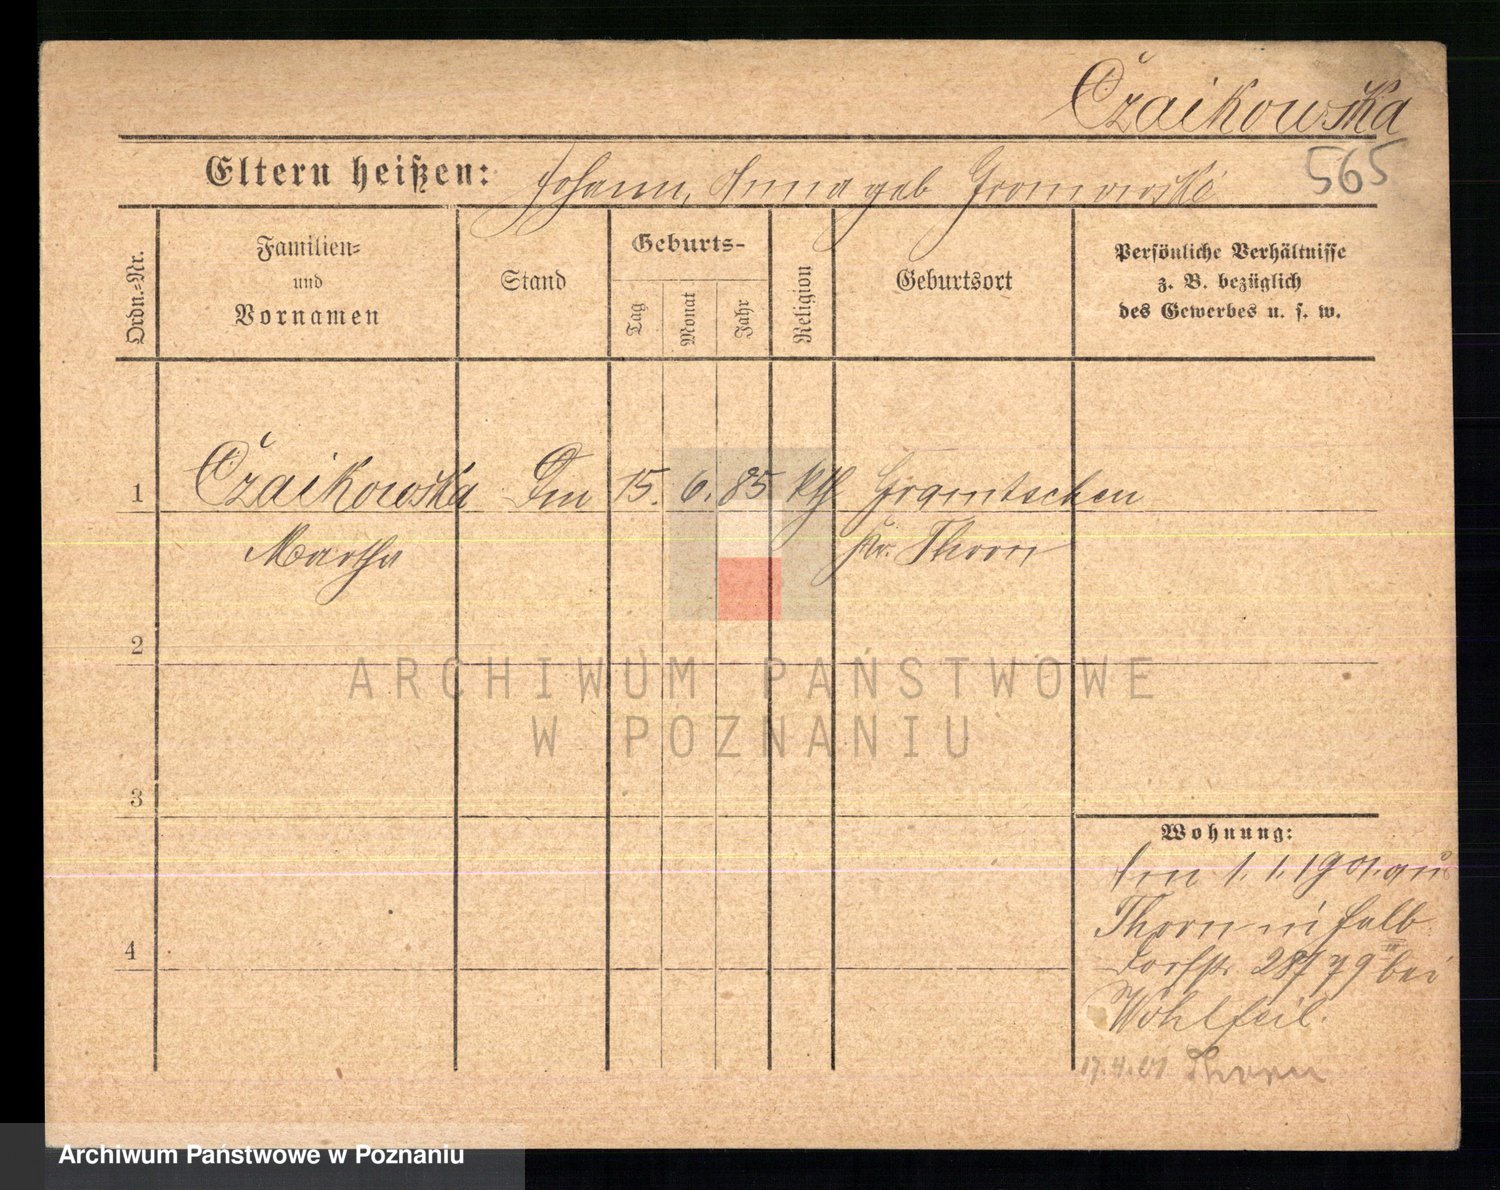 Czaikowska
565
Eltern heißen: Johann, Anna geb Gromowski
Ordn.=Nr.
Familien=
und
Vornamen
Stand
Geburts-
Tag
Monat
Jahr
Religion
Geburtsort
Persönliche Verhältnisse
z. B. bezüglich
des Gewerbes u. s. w.
1 Czaikowska 15. 6. 85 kth Gramtschen
Martha Kr. Thorn
2
ARCHIWUM PAŃSTWOWE
W POZNANIU
3
Wohnung:
Am 1. 1. 1901. aus
Thorn in Halb
dorfstr. 28/29 bei
Wohlfeil.
4
17.4.01 Thorn
Archiwum Państwowe w Poznaniu